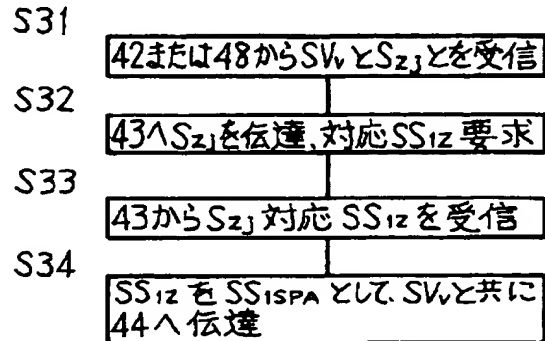 S31
42または48からSVvとSzjとを受信
S32
43へSzjを伝達、対応SS1z要求
S33
43からSzj対応SS1zを受信
S34
SS1zをSS1SPAとして、SVvと共に
44へ伝達